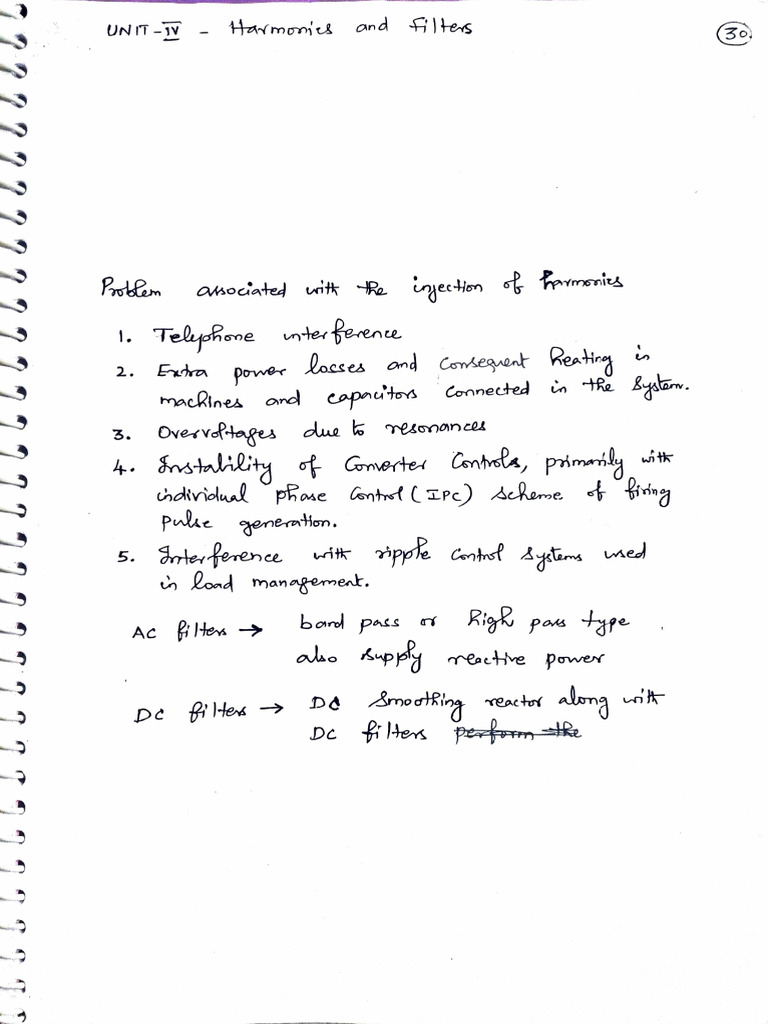 UNIT-IV - Harmonics and filters
30.
Problem associated with the injection of harmonics
1. Telephone interference
2. Extra power losses and consequent heating in
machines and capacitors connected in the system.
3. Overvoltages due to resonances
4. Instability of Converter Controls, primarily with
individual phase control (IPC) scheme of firing
pulse generation.
5. Interference with ripple control systems used
in load management.
AC filters → band pass or high pass type
also supply reactive power
DC filters → DC smoothing reactor along with
DC filters perform the